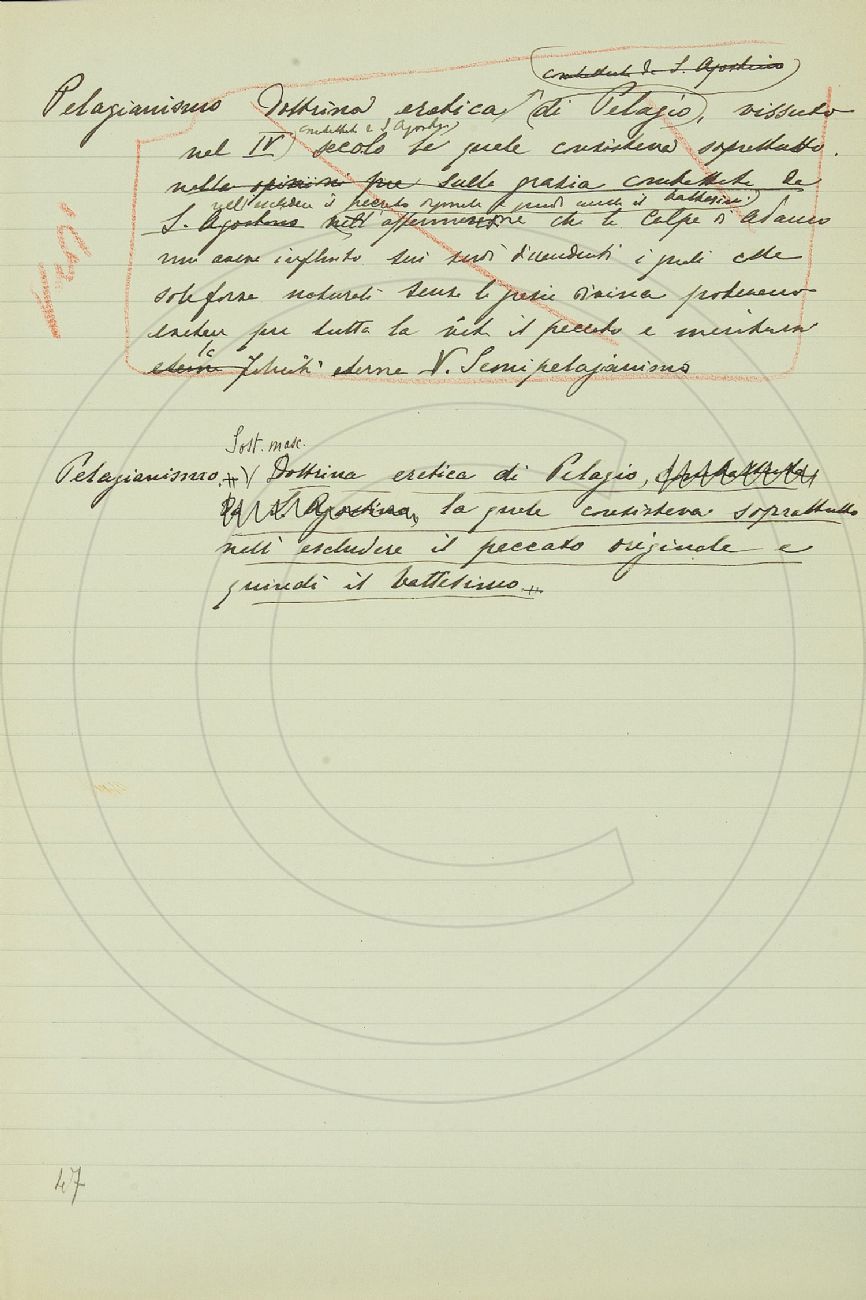 combattuta da S. Agostino
Pelagianismo Dottrina eretica (di Pelagio), vissuto
combattuta da S. Agostino
nel IV secolo la quale consisteva soprattutto
nelle opinioni sulla grazia combattute da
nell'escludere il peccato originale e quindi anche il battesimo.
S. Agostino nell'affermazione che la colpa di Adamo
non aveva influito sui suoi discendenti i quali colle
sole forze naturali senza la grazia divina potevano
evitare per tutta la vita il peccato e meritare
la
eterna felicità eterna V. Semipelagianismo
Sost. masc.
Pelagianismo. Dottrina eretica di Pelagio, combattuta
da S. Agostino, la quale consisteva soprattutto
nell'escludere il peccato originale e
quindi il battesimo.
47